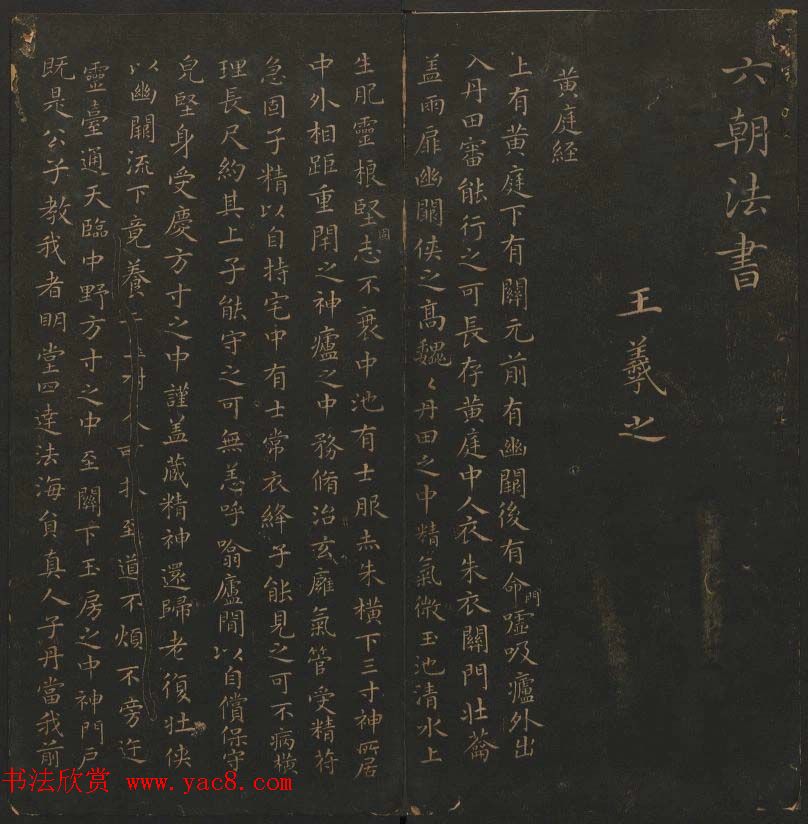 六朝法書
王羲之
黄庭経
上有黄庭下有關元前有幽闕後有命門噓吸廬外出
入丹田審能行之可長存黄庭中人衣朱衣關門壮蘥
盖兩扉幽闕侠之髙魏〻丹田之中精氣微玉池清水上
生肥靈根堅固志不衰中池有士服赤朱橫下三寸神所居
中外相距重閇之神廬之中務脩治玄廱氣管受精符
急固子精以自持宅中有士常衣絳子能見之可不病橫
理長尺約其上子能守之可無恙呼噏廬間以自償保守
皃堅身受慶方寸之中謹盖蔵精神還歸老復壮侠
以幽闕流下竟養至道不煩不旁迕
靈臺通天臨中野方寸之中至關下玉房之中神門戶
既是公子教我者明堂四達法海負真人子丹當我前
书法欣赏 www.yac8.com